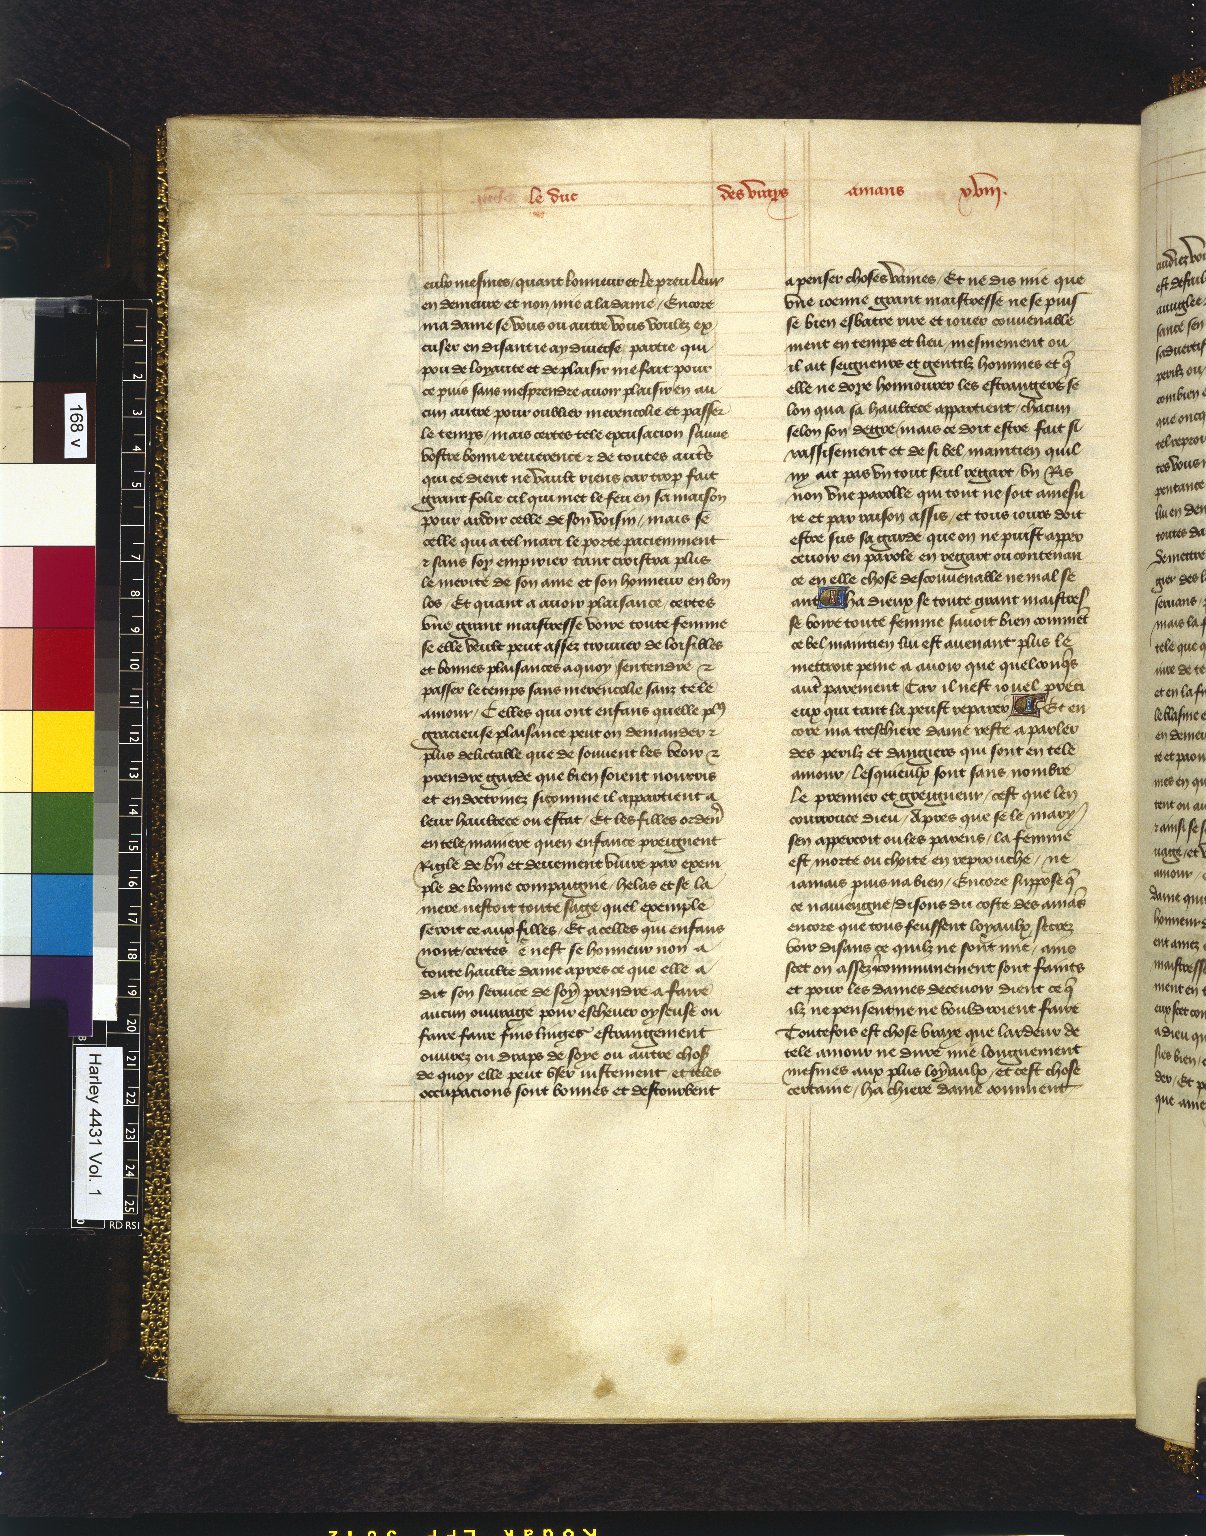 le duc des vrays amans xviii.
eulx mesmes / quant lonneur et le preu leur
en demeure et non mie a la dame / Encore
ma dame se vous ou autre vous voulez ex
cuser en disant ie ay diuerse partie qui
pou de loyaute et de plaisir me fait pour
ce puis sans mesprendre auoir plaisir en au
cun autre pour oublier merencolie et passer
le temps / mais certes tele excusacion sauue
vostre bonne reuerence et de toutes autres
qui ce dient ne vault riens car trop fait
grant folie cil qui met le feu en sa maison
pour ardoir celle de son voisin / mais se
celle qui a tel mari le porte paciemment
et sans soy empirier tant croistra plus
le merite de son ame et son honneur en bon
los / Et quant a auoir plaisance / certes
vne grant maistresse voire toute femme
se elle veult peut assez trouuer de loisibles
et bonnes plaisances a quoy sentendre et
passer le temps sans merencolie sanz tele
amour / Celles qui ont enfans quelle plus
gracieuse plaisance peut on demander et
plus delictable que de souuent les veoir et
prendre garde que bien soient nourris
et endoctrinez si comme il appartient a
leur haultece ou estat / Et les filles ordener
en tele maniere quen enfance preignent
Rigle de bien et deuement viure par exem
ple de bonne compaignie / helas et se la
mere nestoit toute sage quel exemple
seroit ce aux filles / Et a celles qui enfans
nont / certes ce nest se honneur non a
toute haulte dame apres ce que elle a
dit son seruice de soy prendre a faire
aucun ouurage pour escheuer oyseuse ou
faire faire fins linges estrangement
ouurez ou draps de soye ou autre chose
de quoy elle peut vser iustement et teles
occupacions sont bonnes et destourbent
a penser choses vaines / Et ne dis mie que
vne ioenne grant maistresse ne se puist
se bien esbatre rire et iouer couuenable
ment en temps et lieu mesmement ou
il ait seigneurs et gentilz hommes et que
elle ne doye honnourer les estrangers se
lon qua sa haultece appartient / chacun
selon son degre / mais ce doit estre fait si
rassisement et de si bel maintien quil
ny ait pas vn tout seul regart / vn Ris
non vne parolle qui tout ne soit amesu
re et par raison assis / et tous iours doit
estre sus sa garde que on ne puist apper
ceuoir en parole en regart ou contenan
ce en elle chose descouuenable ne mal se
ant Ha dieux se toute grant maistres
se voire toute femme sauoit bien comment
ce bel maintien lui est auenant plus le
mettroit peine a auoir que quelconques
autre parement Car il nest iouel preci
eux qui tant la peust reparer / Et en
core ma treschiere dame reste a parler
des perilz et dangiers qui sont en tele
amour / lesquieulx sont sans nombre
Le premier et greigneur / cest que len
courrouce dieu / Apres que se le mary
sen appercoit ou les parens / la femme
est morte ou choite en reprouche / ne
iamais puis na bien / Encore suppose que
ce nauiengne / disons du coste des amans
encore que tous feussent loyaulx secrez
voir disans ce quilz ne sont mie / ains
scet on assez communement sont faints
et pour les dames deceuoir dient ce que
ilz ne pensent ne ne vouldroient faire
Toutefois est chose vraye que lardeur de
tele amour ne dure mie longuement
mesmes aux plus loyaulx / et cest chose
certaine / ha chiere dame comment
168 v
Harley 4431 Vol. 1